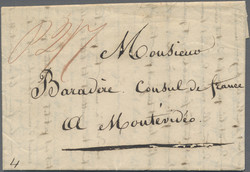 Monsieur
Baradère Consul de france
A Montévidéo
4